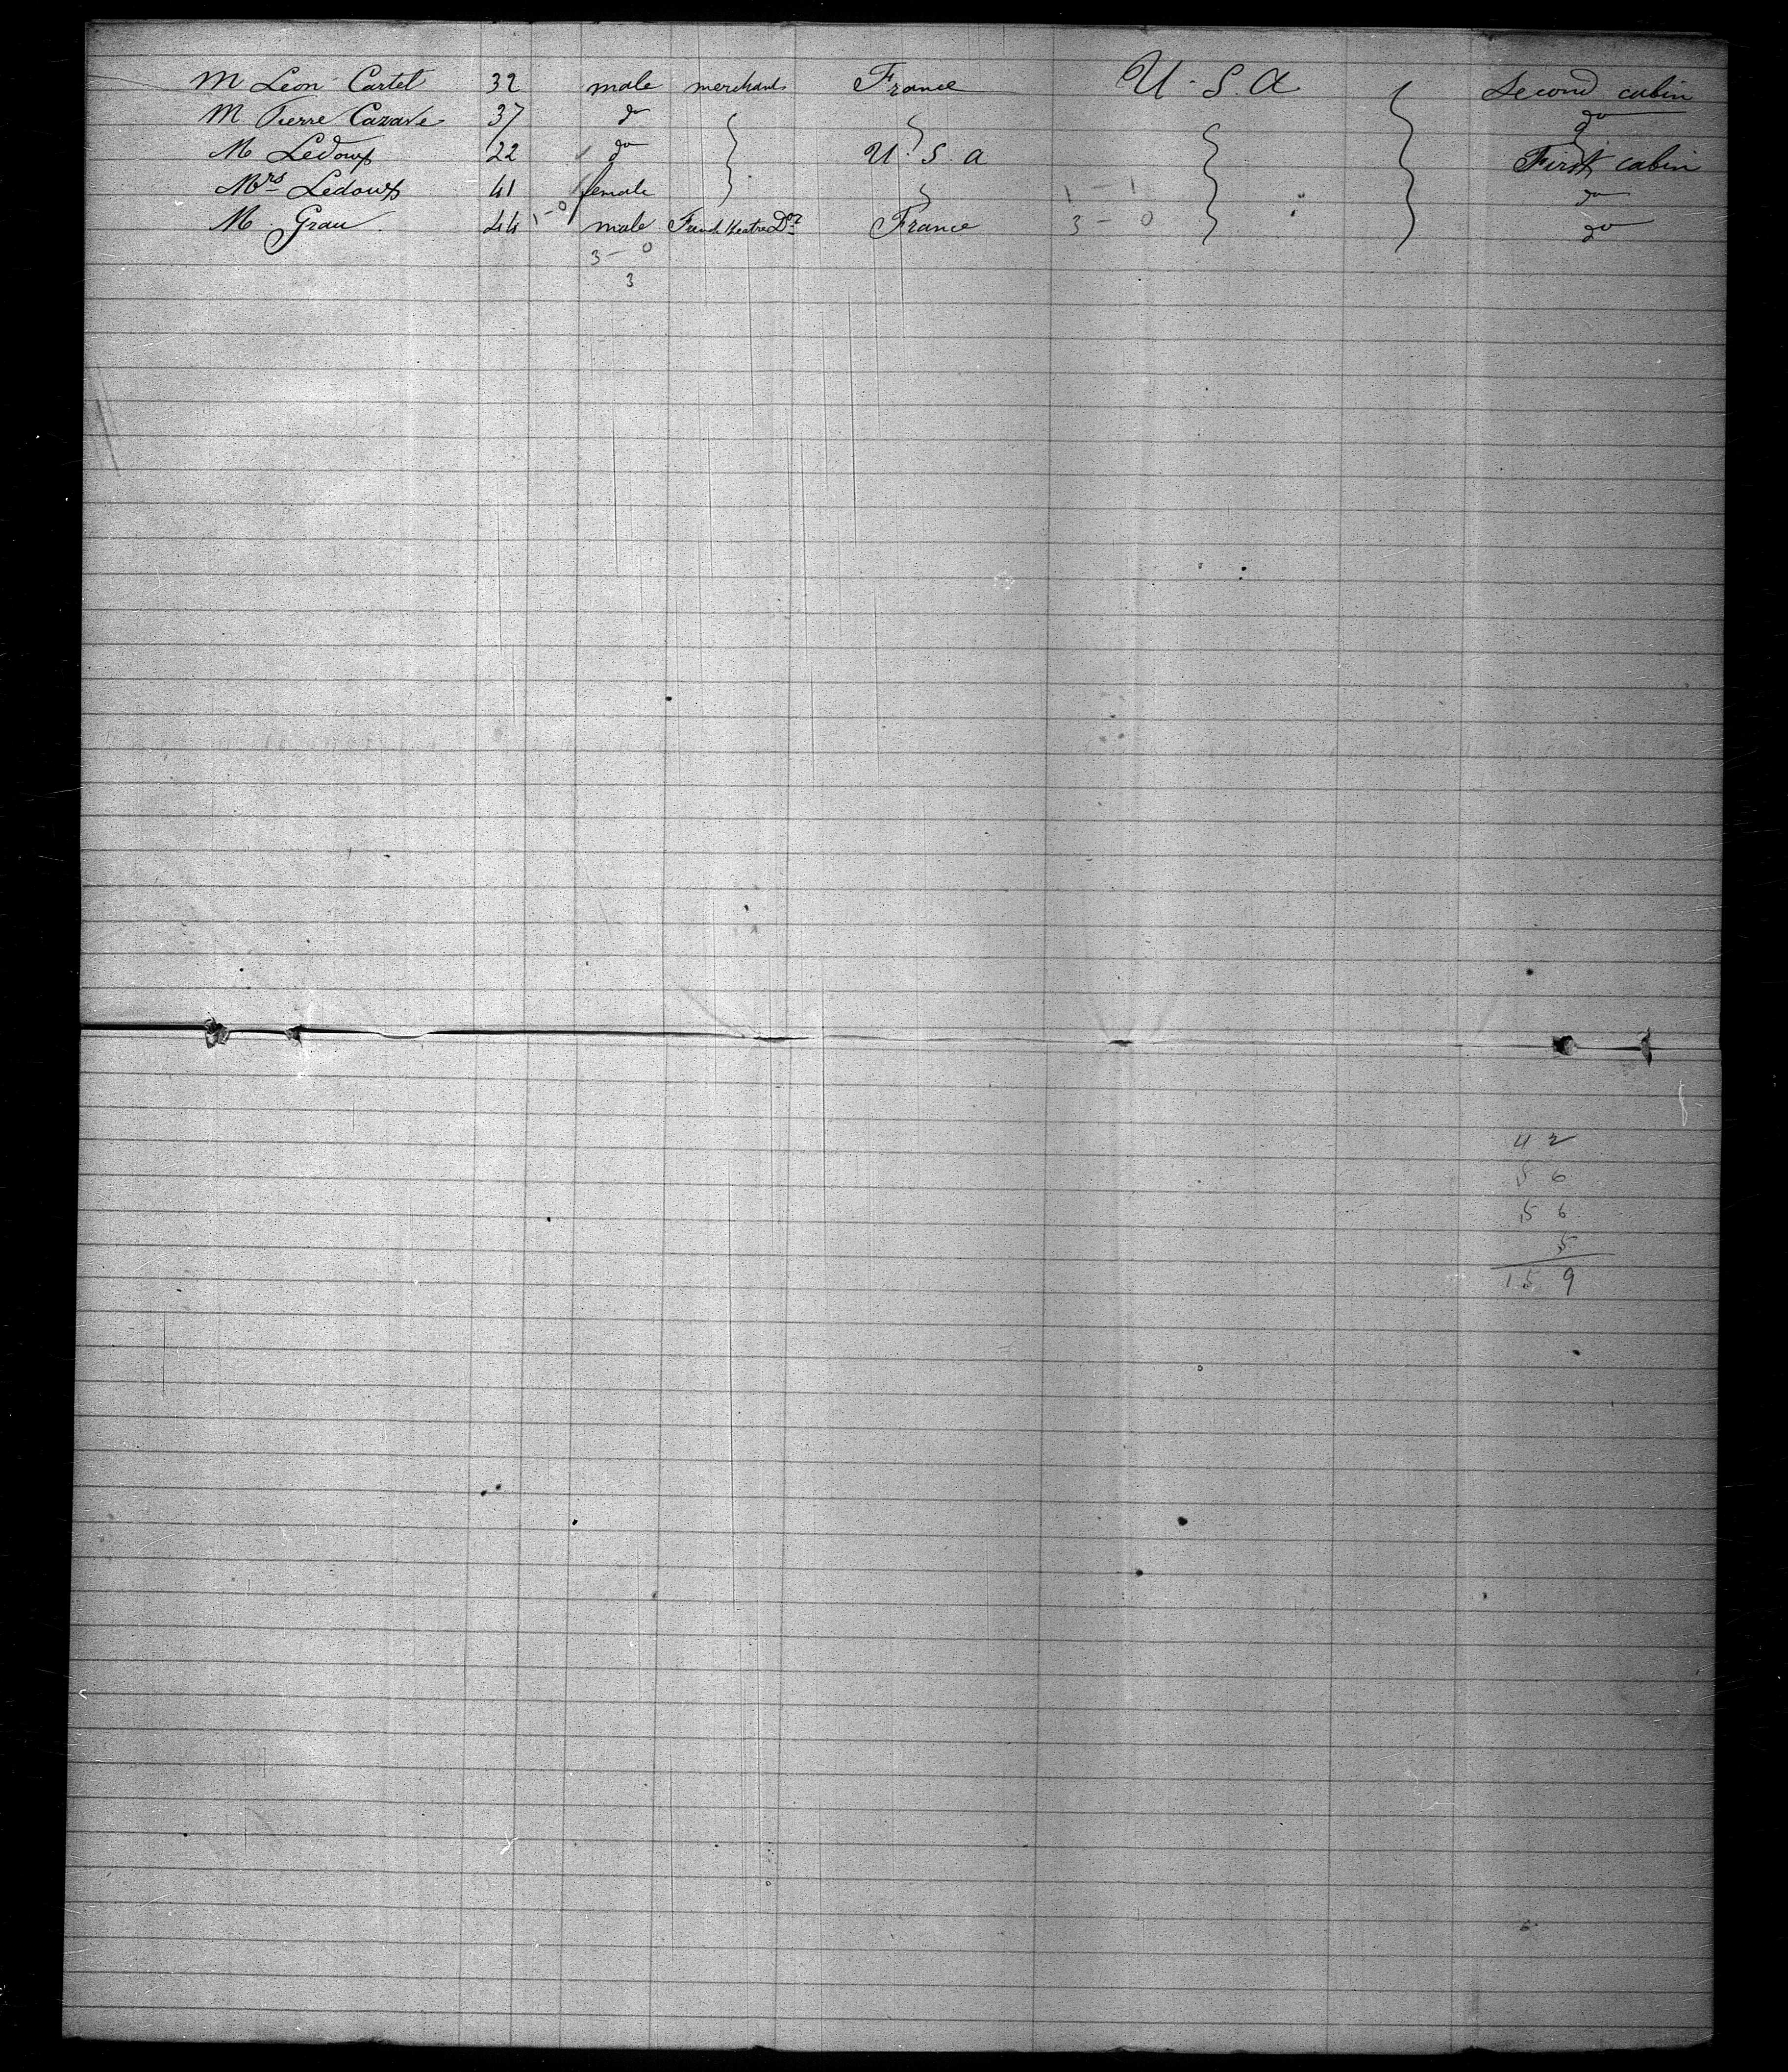 M Léon Cartel 32 male merchant France U. S. A Second cabin
M Pierre Cazave 37 do do
M Ledoux 22 do U. S. A First cabin
Mrs Ledoux 41 female 1 - 1 do
M. Grau 44 1 - 0 male French theatre Dor France 3 - 0 do
3 - 0
3
42
56
56
5
159